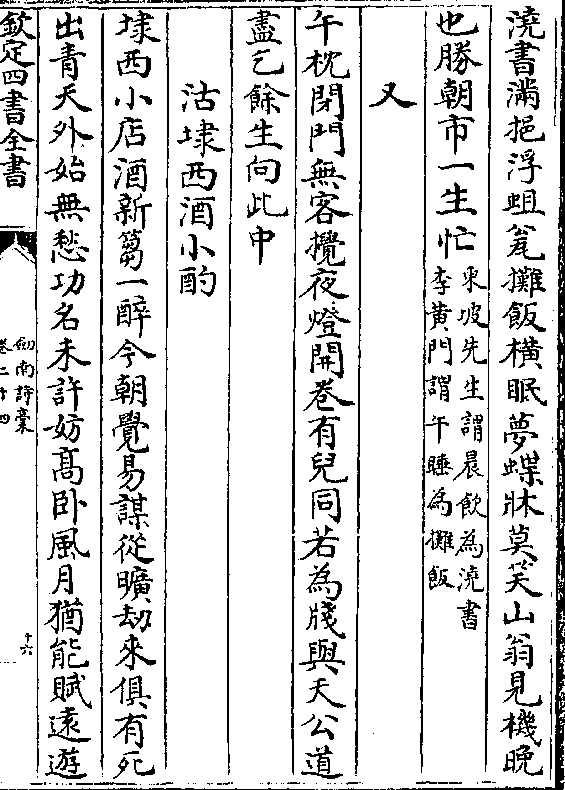 澆書滿挹浮蛆瓮攤飯橫眠夢蝶牀莫笑山翁見機晚
也勝朝市一生忙東坡先生謂晨飲為澆書
李黃門謂午睡為攤飯
又
午枕閉門無客攪夜燈開巻有兒同若為牋與天公道
盡乞餘生向此中
沽埭西酒小酌
埭西小店酒新篘一醉今朝覺易謀從曠劫來俱有死
出青天外始無愁功名未許妨髙卧風月猶能賦遠遊
欽定四書全書
劎南詩藁
卷二十四
十六